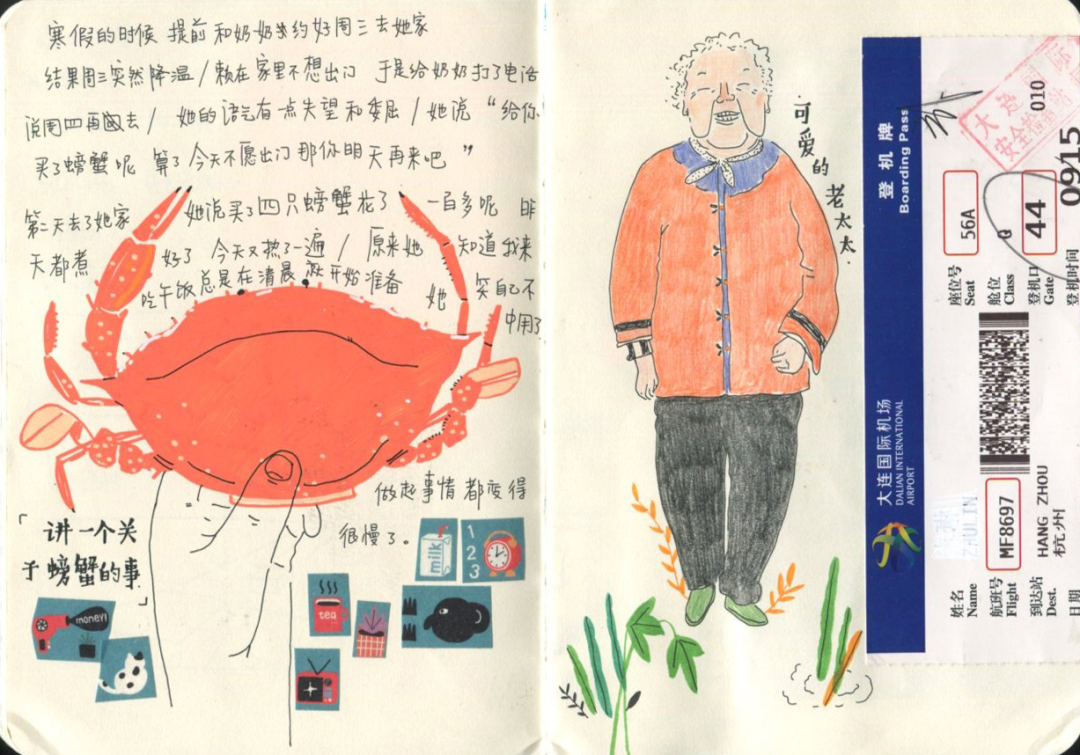 寒假的时候 提前和奶奶约好周三去她家
结果周三突然降温/赖在家里不想出门 于是给奶奶打了电话
说周四再去/她的语气有一点失望和委屈/她说“给你
买了螃蟹呢 算了今天不愿出门那你明天再来吧”
第二天去了她家 她说买了四只螃蟹花了一百多呢 昨
天都煮好了 今天又热了一遍/原来她一知道我来
吃午饭总是在清晨就开始准备 她笑自己不
中用了
做起事情都变得
很慢了。
「讲一个关
于螃蟹的事.」
milk
1
2
3
money!
tea
可爱的老太太.
登机牌
Boarding Pass
大连国际机场
DALIAN INTERNATIONAL
AIRPORT
010
座位号
Seat
56A
舱位
Class
Q
登机口
Gate
44
登机时间
0915
姓名
Name
ZHULIN
航班号
Flight
MF8697
到达站
Dest.
HANG ZHOU
杭州
日期